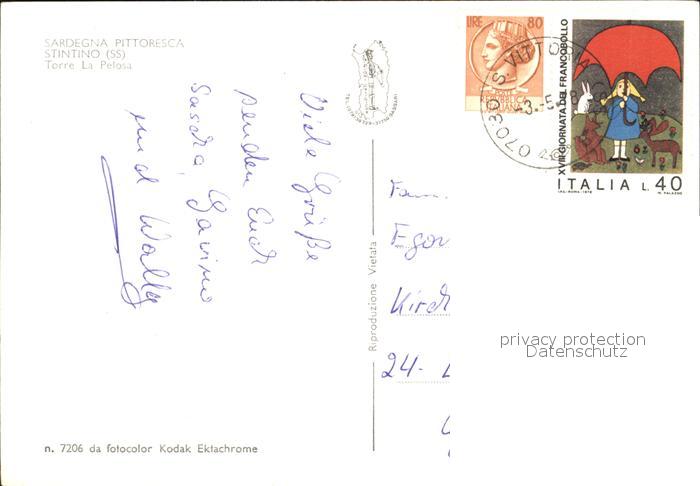 SARDEGNA PITTORESCA
STINTINO (SS)
Torre La Pelosa
Viele Grüße
senden Euch
Sascha, Gavino
und Wally
LIRE 80
XVIII GIORNATA DEL FRANCOBOLLO
ITALIA L. 40
I.P.S.-ROMA-1976
M. PALAZZO
07030 S. VITTORIA
3.-5
Riproduzione Vietata
Fam.
Egon
Kirch
24-
privacy protection
Datenschutz
n. 7206 da fotocolor Kodak Ektachrome